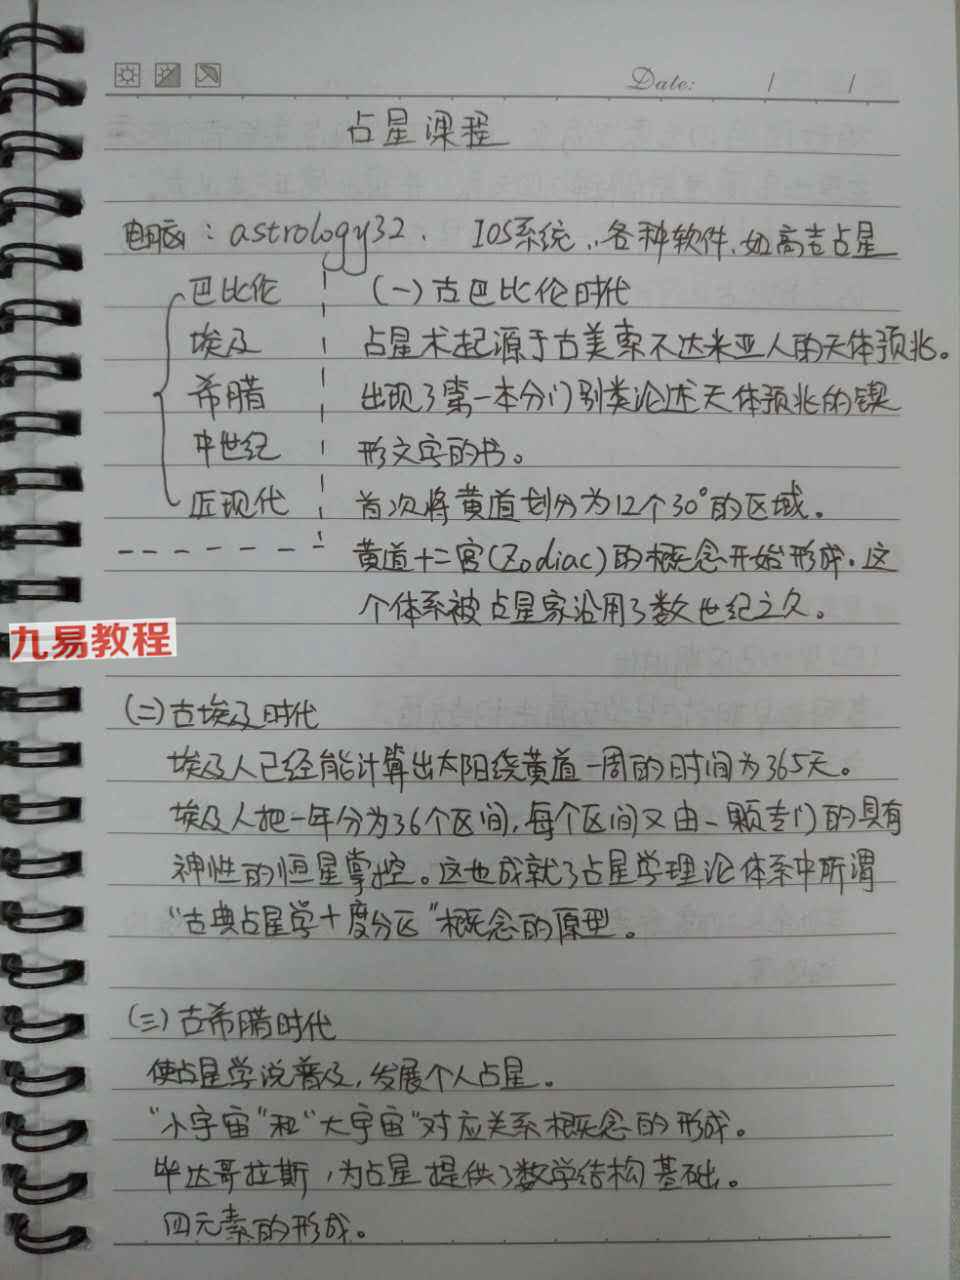 Date: / /
占星课程
电脑：astrology32． IOS系统，各种软件，如高吉占星
巴比伦
埃及
希腊
中世纪
近现代
(一)古巴比伦时代
占星术起源于古美索不达米亚人的天体预兆。
出现了第一本分门别类论述天体预兆的锲
形文字的书。
首次将黄道划分为12个30°的区域．
黄道十二宫(Zodiac)的概念开始形成．这
个体系被占星家沿用了数世纪之久．
九易教程
(二)古埃及时代
埃及人已经能计算出太阳绕黄道一周的时间为365天。
埃及人把一年分为36个区间，每个区间又由一颗专门的具有
神性的恒星掌控。这也成就了占星学理论体系中所谓
“古典占星学十度分区”概念的原型。
(三)古希腊时代
使占星学说普及，发展个人占星。
“小宇宙”和“大宇宙”对应关系概念的形成。
毕达哥拉斯，为占星提供了数学结构基础。
四元素的形成。